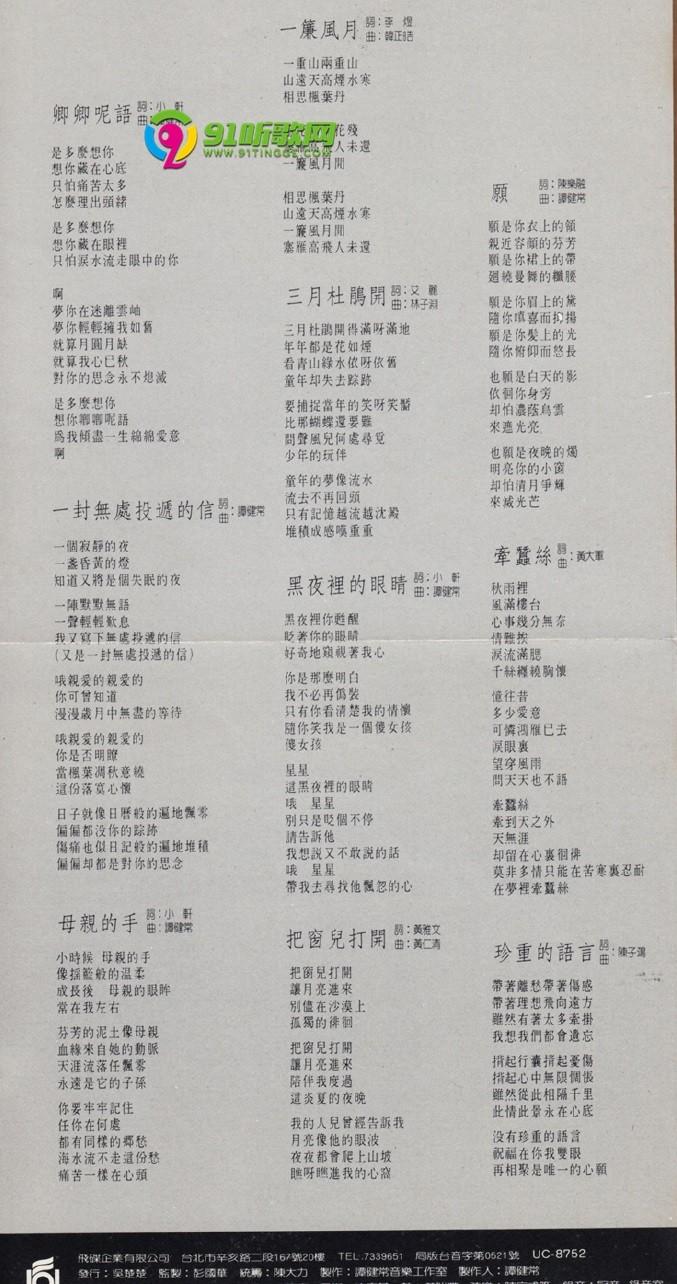 卿卿呢語 詞：小軒
是多麼想你
想你藏在心底
只怕痛苦太多
怎麼理出頭緒
是多麼想你
想你藏在眼裡
只怕淚水流走眼中的你
啊
夢你在迷離雲岫
夢你輕輕擁我如舊
就算月圓月缺
就算我心已秋
對你的思念永不熄滅
是多麼想你
想你卿卿呢語
為我傾盡一生綿綿愛意
啊
一封無處投遞的信 詞曲：譚健常
一個寂靜的夜
一盞昏黃的燈
知道又將是個失眠的夜
一陣默默無語
一聲輕輕歎息
我又寫下無處投遞的信
(又是一封無處投遞的信)
哦親愛的親愛的
你可曾知道
漫漫歲月中無盡的等待
哦親愛的親愛的
你是否明瞭
當楓葉凋秋意繞
這份落寞心懷
日子就像日曆般的遍地飄零
偏偏都沒你的踪跡
傷痛也似日記般的遍地堆積
偏偏却都是對你的思念
母親的手 詞：小軒 曲：譚健常
小時候 母親的手
像搖籃般的溫柔
成長後 母親的眼眸
常在我左右
芬芳的泥土像母親
血緣來自她的動脈
天涯流落任飄零
永遠是它的子孫
你要牢牢記住
任你在何處
都有同樣的鄉愁
海水流不走這份愁
痛苦一樣在心頭
一簾風月 詞：李煜 曲：韓正皓
一重山兩重山
山遠天高煙水寒
相思楓葉丹
花殘
人未還
一簾風月閒
相思楓葉丹
山遠天高煙水寒
一簾風月閒
塞雁高飛人未還
三月杜鵑開 詞：艾麗 曲：林子淵
三月杜鵑開得滿呀滿地
年年都是花如煙
看青山綠水依呀依舊
童年却失去踪跡
要捕捉當年的笑呀笑靨
比那蝴蝶還要難
問聲風兒何處尋覓
少年的玩伴
童年的夢像流水
流去不再回頭
只有記憶越流越沈澱
堆積成感嘆重重
黑夜裡的眼睛 詞：小軒 曲：譚健常
黑夜裡你甦醒
眨著你的眼睛
好奇地窺視著我心
你是那麼明白
我不必再偽裝
只有你看清楚我的情懷
隨你笑我是一個傻女孩
傻女孩
星星
這黑夜裡的眼睛
哦 星星
別只是眨個不停
請告訴他
我想說又不敢說的話
哦 星星
帶我去尋找他飄忽的心
把窗兒打開 詞：黃雅文 曲：黃仁清
把窗兒打開
讓月亮進來
別儘在沙漠上
孤獨的徘徊
把窗兒打開
讓月亮進來
陪伴我度過
這炎夏的夜晚
我的人兒曾經告訴我
月亮像他的眼波
夜夜都會爬上山坡
瞧呀瞧進我的心窩
願 詞：陳樂融 曲：譚健常
願是你衣上的領
親近容顏的芬芳
願是你裙上的帶
迴繞曼舞的纖腰
願是你眉上的黛
隨你嗔喜而抑揚
願是你髮上的光
隨你俯仰而悠長
也願是白天的影
依徊你身旁
却怕濃蔭烏雲
來遮光亮
也願是夜晚的燭
明亮你的小窗
却怕清月爭輝
來威光芒
牽蠶絲 詞曲：黃大軍
秋雨裡
風滿樓台
心事幾分無奈
情難挨
淚流滿腮
千絲纏繞胸懷
憶往昔
多少愛意
可憐鴻雁已去
淚眼裏
望穿風雨
問天天也不語
牽蠶絲
牽到天之外
天無涯
却留在心裏徊徘
莫非多情只能在苦寒裏忍耐
在夢裡牽蠶絲
珍重的語言 詞曲：陳子鴻
帶著離愁帶著傷感
帶著理想飛向遠方
雖然有著太多牽掛
我想我們都會遺忘
揹起行囊揹起憂傷
揹起心中無限惆悵
雖然從此相隔千里
此情此景永在心底
沒有珍重的語言
祝福在你我雙眼
再相聚是唯一的心願
91听歌网
WWW.91TINGGE.COM
飛碟企業有限公司 台北市辛亥路二段167號20樓 TEL:7339651 局版台音字第0521號 UC-8752
發行：吳楚楚 監製：彭國華 統籌：陳大力 製作：譚健常音樂工作室 製作人：譚健常